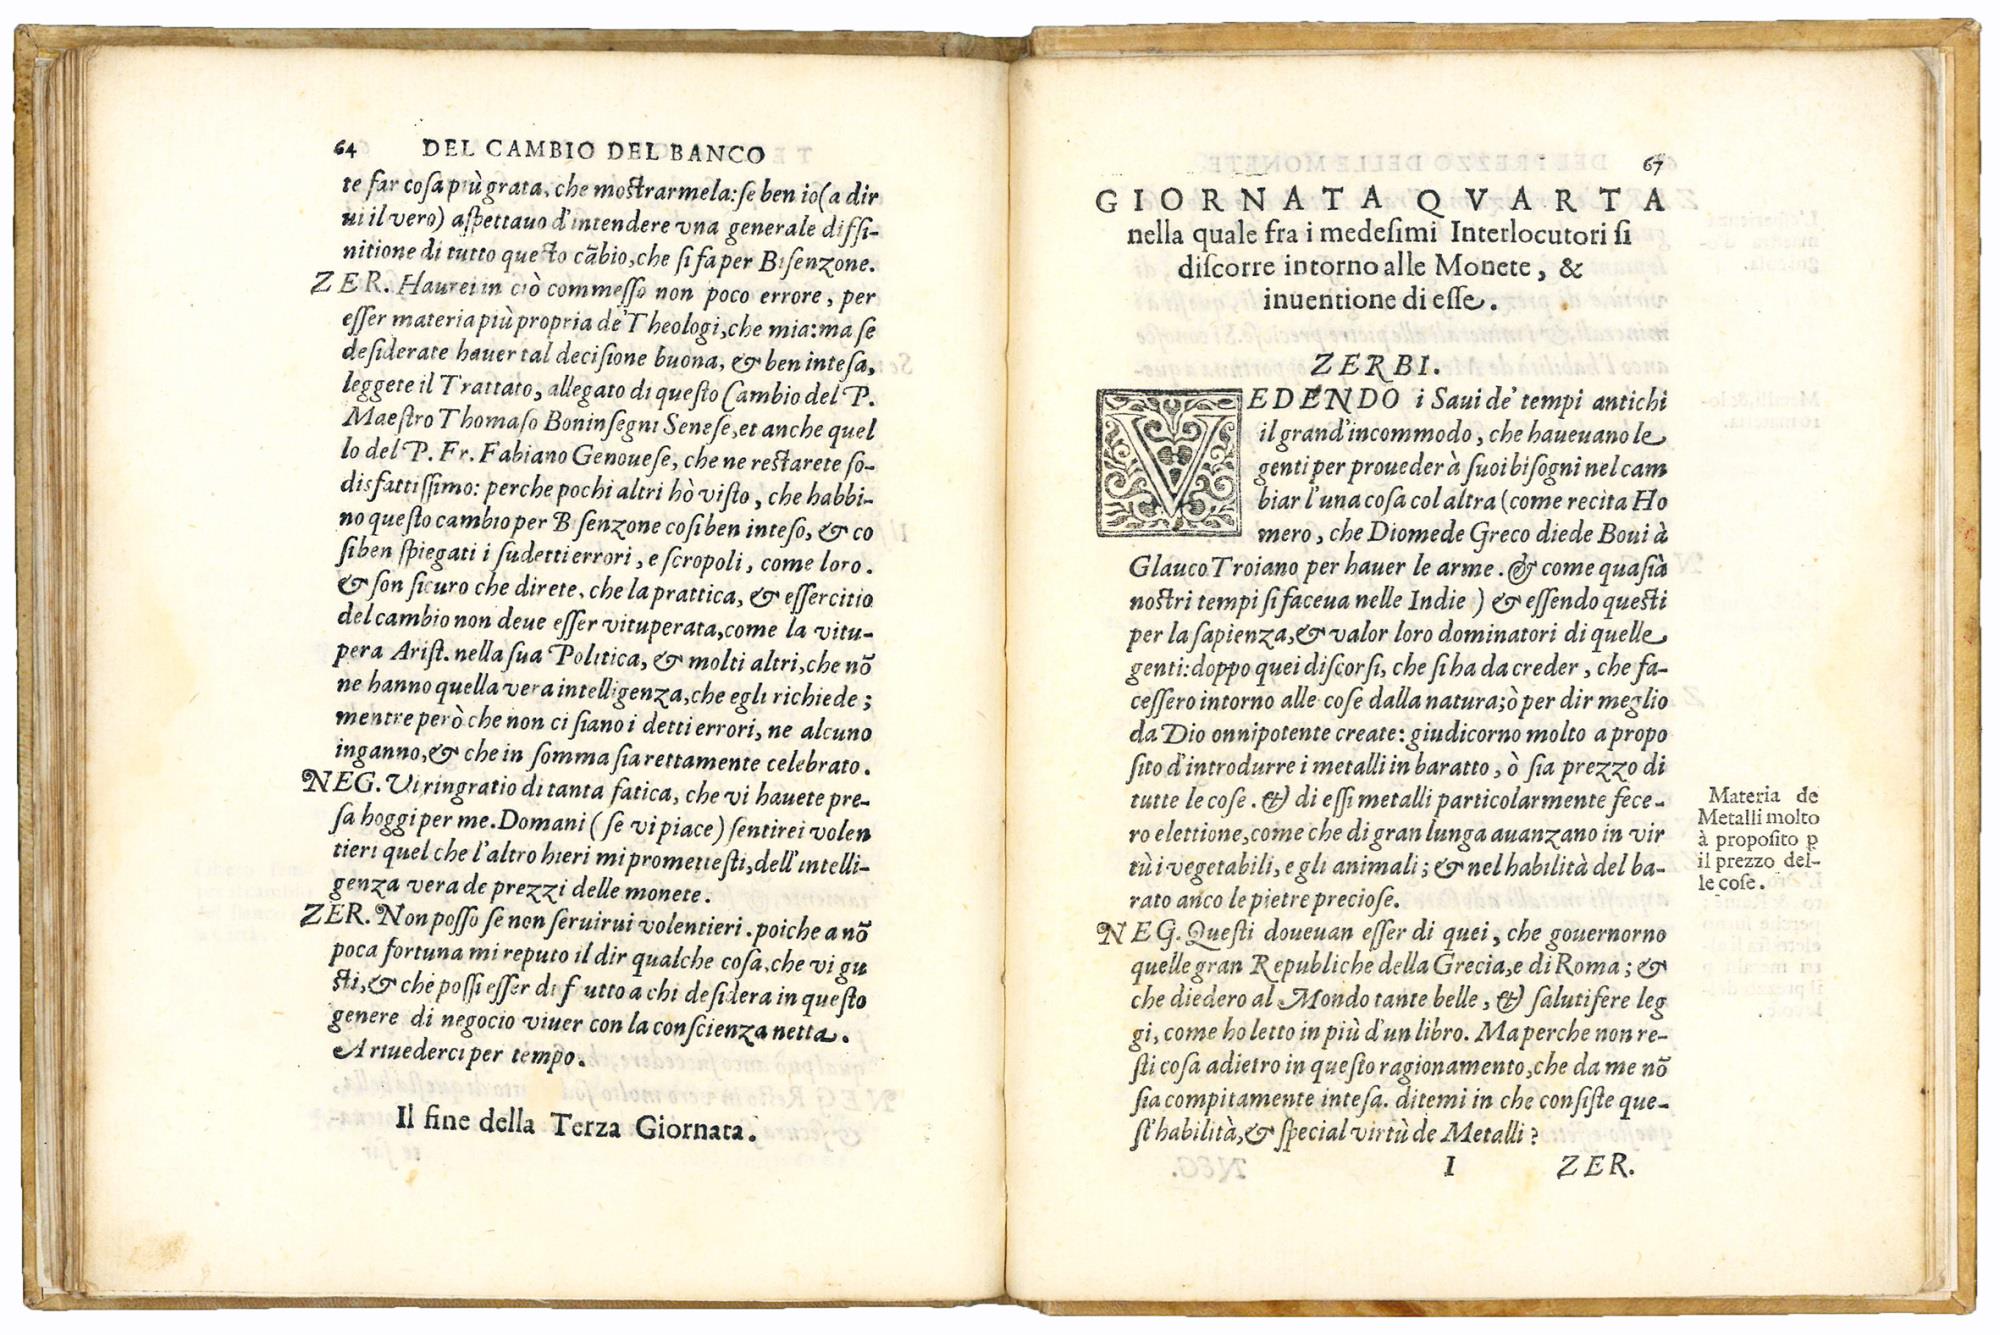 64 DEL CAMBIO DEL BANCO
te far coſa più grata, che moſtrarmela: ſe ben io (a dir
ui il vero) aſpettauo d'intendere vna generale diffi-
nitione di tutto queſto cābio, che ſi fa per Biſenzone.
ZER. Haurei in ciò commeſſo non poco errore, per
eſſer materia più propria de' Theologi, che mia: ma ſe
deſiderate hauer tal deciſione buona, & ben inteſa,
leggete il Trattato, allegato di queſto Cambio del P.
Maeſtro Thomaſo Boninſegni Seneſe, et anche quel
lo del P. Fr. Fabiano Genoueſe, che ne reſtarete ſo-
disfattiſſimo: perche pochi altri hò viſto, che habbi-
no queſto cambio per B ſenzone coſi ben inteſo, & co
ſi ben ſpiegati i ſudetti errori, e ſcropoli, come loro.
& ſon ſicuro che direte, che la prattica, & eſſercitio
del cambio non deue eſſer vituperata, come la vitu-
pera Ariſt. nella ſua Politica, & molti altri, che nō
ne hanno quella vera intelligenza, che egli richiede;
mentre però che non ci ſiano i detti errori, ne alcuno
inganno, & che in ſomma ſia rettamente celebrato.
NEG. Vi ringratio di tanta fatica, che vi hauete pre-
ſa hoggi per me. Domani (ſe vi piace) ſentirei volen
tieri quel che l'altro hieri mi prometteſti, dell'intelli-
genza vera de prezzi delle monete.
ZER. Non poſſo ſe non ſeruirui volentieri. poiche a nō
poca fortuna mi reputo il dir qualche coſa, che vi gu
ſti, & che poſſi eſſer di f utto a chi deſidera in queſto
genere di negocio viuer con la conſcienza netta.
A riuederci per tempo.
Il fine della Terza Giornata.
67
GIORNATA QVARTA
nella quale fra i medeſimi Interlocutori ſi
diſcorre intorno alle Monete, &
inuentione di eſſe.
ZERBI.
VEDENDO i Saui de' tempi antichi
il grand'incommodo, che haueuano le
genti per proueder à ſuoi biſogni nel cam
biar l'una coſa col altra (come recita Ho
mero, che Diomede Greco diede Boui à
Glauco Troiano per hauer le arme. & come quaſi à
noſtri tempi ſi faceua nelle Indie) & eſſendo queſti
per la ſapienza, & valor loro dominatori di quelle
genti: doppo quei diſcorſi, che ſi ha da creder, che fa-
ceſſero intorno alle coſe dalla natura; ò per dir meglio
da Dio onnipotente create: giudicorno molto a propo
ſito d'introdurre i metalli in baratto, ò ſia prezzo di
tutte le coſe. & di eſſi metalli particolarmente fece-
ro elettione, come che di gran lunga auanzano in vir
tù i vegetabili, e gli animali; & nel habilità del ba-
rato anco le pietre precioſe.
Materia de
Metalli molto
à propoſito p
il prezzo del-
le coſe.
NEG. Queſti doueuan eſſer di quei, che gouernorno
quelle gran Republiche della Grecia, e di Roma; &
che diedero al Mondo tante belle, & ſalutifere leg
gi, come ho letto in più d'un libro. Ma perche non re-
ſti coſa adietro in queſto ragionamento, che da me nō
ſia compitamente inteſa. ditemi in che conſiſte que-
ſt'habilità, & ſpecial virtù de Metalli?
I ZER.